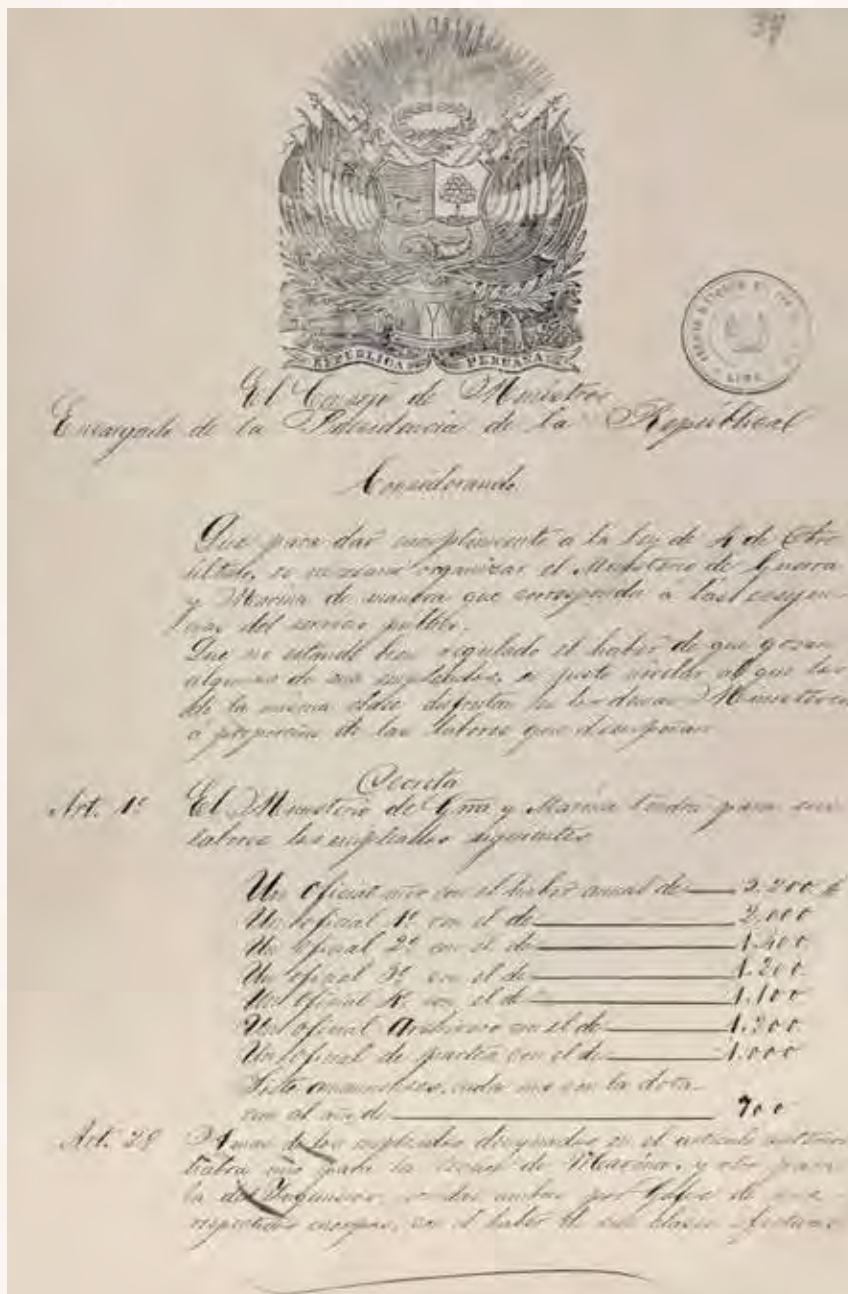 37
REPUBLICA PERUANA
LIMA
El Consejo de Ministros
Encargado de la Presidencia de la República
Considerando
Que para dar cumplimiento a la ley de 4 de Obre
último, es necesario organizar el Ministerio de Guerra
y Marina de manera que corresponda a las exijen-
cias del servicio público.
Que no estando bien regulado el haber de que gozan
algunos de sus empleados, es justo nivelar al que los
de la misma clase disfrutan en los demas Ministerios
a proporcion de las labores que desempeñan
Decreta
Art. 1º El Ministerio de Grra y Marina tendrá para sus
labores los empleados siguientes
Un oficial mor con el haber anual de 3.200
Un oficial 1º con el de 2.000
Un oficial 2º con el de 1.400
Un oficial 3º con el de 1.200
Un oficial 4º con el de 1.100
Un oficial Archivero con el de 1.200
Un oficial de partes con el de 1.000
Siete amanuenses, cada uno con la dota-
cion al año de 700
Art. 2º Amas de los empleados designados en el articulo anterior
habrá uno para la Seccion de Marina, y otro para
la de Ingenieros, ambos por Gefes de sus
respectivos cuerpos, con el haber de su clase